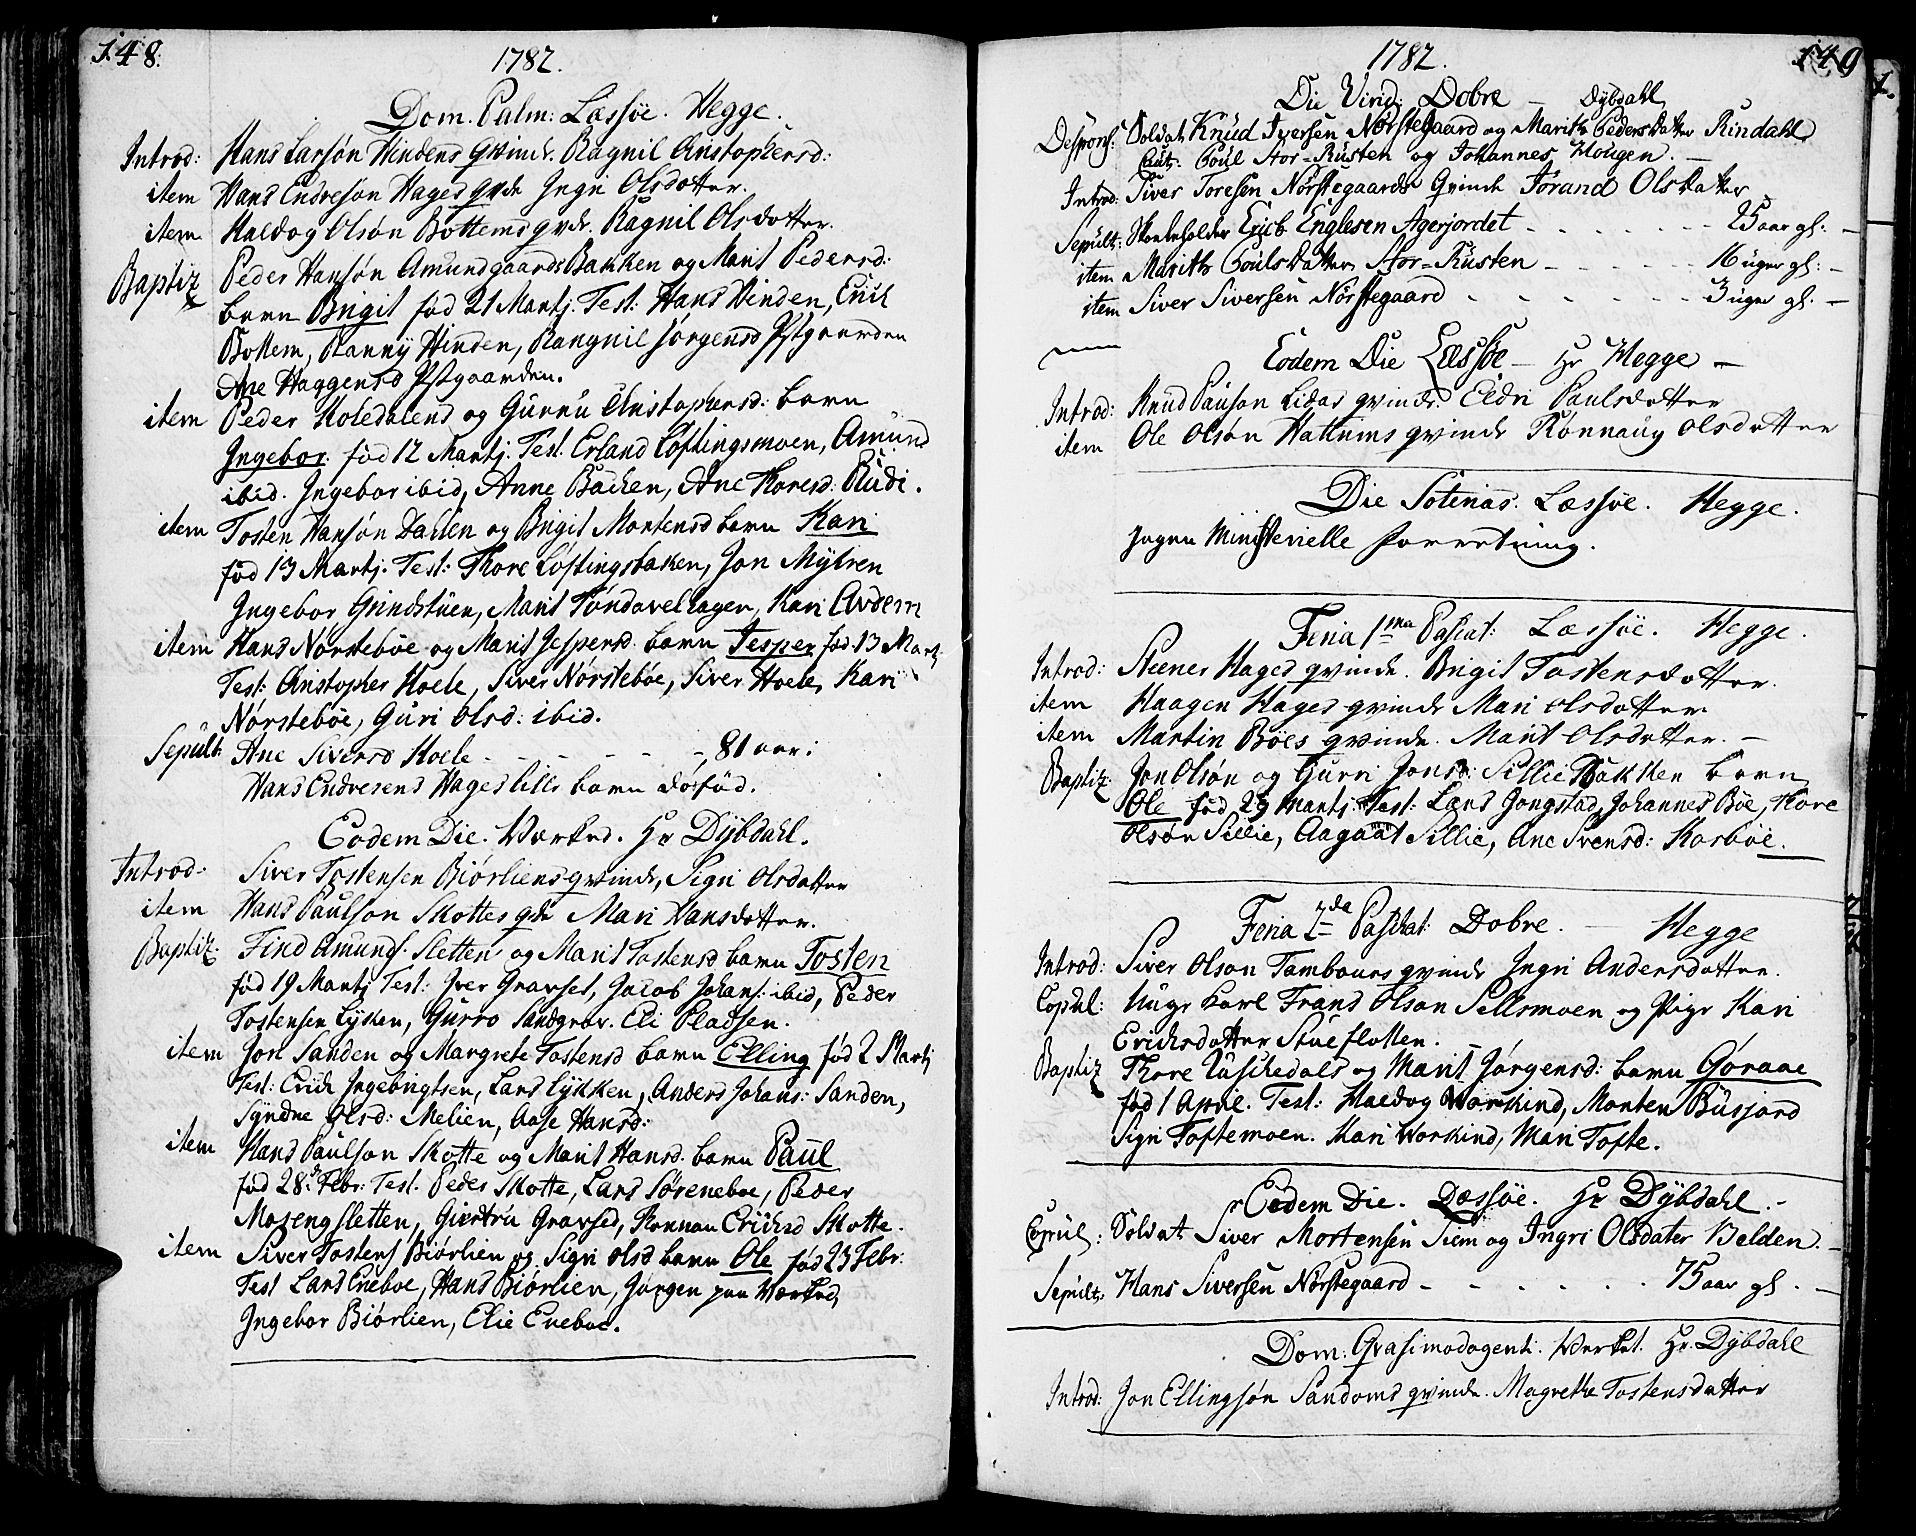 148.
1782.
Dom. Palm: Læssøe. Hegge.
Introd: Hans Larsøn Hindens qvinde. Ragnil Christophersd:
item Hans Endresøn Hages qvde Ingri Olsdatter.
item Haldog Olsøn Bottems qvde. Ragnil Olsdatter.
Baptiz Peder Hansøn Amundgaards Bakken og Marit Pedersd:
barn Brigit fød 21 Martj. Test: Hans Hinden, Erich
Bottem, Ranny Hinden, Rangnil Jørgensd Ystgaarden
Ane Haggensd Ystgaarden.
item Peder Holedalens og Gurru Christophersd: barn
Ingebor fød 12 Martj. Test. Erland Løftingsmoen, Amund
ibid. Ingebor ibid, Anne Bachen, Ane Thoresd: Rudi.
item Tosten Hansøn Dahlen og Brigit Mortensd barn Kari
fød 13 Martj. Test: Thore Løftingsbaken, Jon Mylren
Ingebor Grindstuen, Marit Tøndevelhagen, Kari Avdem
item Hans Nørstebøe og Marit Jespersd. barn Jesper fød 13 Martj
Test: Christopher Hoele, Siver Nørstebøe, Siver Hoele, Kari
Nørstebøe, Guri Olsd: ibid.
Sepult: Ane Siversd Hoele - - - - - 81 aar:
Hans Endresens Hages lille barn dødfød.
Eodem Die. Værket. Hr Dybdahl.
Introd: Siver Tostensen Biørliens qvinde, Sigri Olsdatter
item Hans Paulson Skottes qde Mari Hansdatter.
Baptiz. Find Amunds: Sletten og Marit Tostensd barn Tosten
fød 19 Martj Test: Iver Gravset, Jacob Johans: ibid, Peder
Tostensen Lyken, Gurro Sandgrov. Eli Pladsen.
item Jon Sanden og Margrete Tostensd barn Elling fød 2 Martj
Test: Erich Ingebrigtsen, Lars Lykken, Anders Johans: Sanden,
Syndne Olsd: Melien, Aase Hansd:
item Hans Paulson Skotte og Marit Hansd. barn Paul
fød 28. Febr: Test. Peder Skotte, Lars Søreneboe, Peder
Mosengsletten, Giertru Gravsed, Ronnau Erichsd Skotte.
item Siver Tostens Biørlien og Sigri Olsd barn Ole fød 23 Febr:
Test Lars Eneboe, Hans Biørlien, Jørgen paa Værket,
Ingebor Biørlien, Elie Eneboe.
149
1782.
Die Virid: Dobre - Dybdahl
Desponf: Soldat Knud Iversen Nørstegaard og Marith Pedersdatter Rindahl
Caut: Poul Stor-Rusten og Johannes Hougen.
Introd: Siver Toresen Nørstegaards Qvinde Jørand Olsdatter
Sepult: Erich Englesen Agerjordet - - - - - 25 aar gl. -
item Marith Poulsdatter Stor-Rusten - - - - 16 uger gl: -
item Siver Siversen Nørstegaard - - - - - 3 uger gl. -
Eodem Die Læssøe - Hr Hegge -
Introd: Knud Paulson Lidas qvinde. Eldri Paulsdatter
item Ole Olsøn Hattrems qvinde Rønnaug Olsdatter
Die Jovinas. Læssøe. Hegge.
Ingen Ministerielle forretning.
Feria 1ma Paschat: Læssøe. Hegge.
Introd: Steener Hages qvinde. Brigit Tostensdatter.
item Haagen Hages qvinde Mari Olsdatter
item Martin Bøes qvinde. Marit Olsdatter. -
Baptiz: Jon Olsøn og Gurri Jonsd: Sillie Bakken barn
Ole fød 23 Martj: Test: Lars Jongstad, Johannes Bøe, Thore
Olsøn Sillie, Aagaat Sillie, Ane Svensd: Horbøe.
Feria 2da Paschat: Dobre. - Hegge
Introd: Siver Olson Tambours qvinde Ingri Andersdatter.
Copul: Unge Karl Frans Olson Sellsmoen og Pige Kari
Erichsdatter Stueflotten.
Baptiz Thore Luschedals og Marit Jørgensd: barn Gøraae
fød 1 April. Test: Haldog Worskind, Morten Busjord
Sigri Toftemoen. Mari Worskind, Mari Tofte.
Eodem Die. Læssøe. Hr Dybdahl. -
Copul: Soldat Siver Mortensen Siem og Ingri Olsdater Belden. -
Sepult: Hans Siversen Nørstegaard - - - - - - 75 aar gl. -
Dom: Qvasimodogenti. Værket. Hr. Dybdahl
Introd: Jon Ellingsøn Sandoms qvinde. Magrethe Tostensdatter